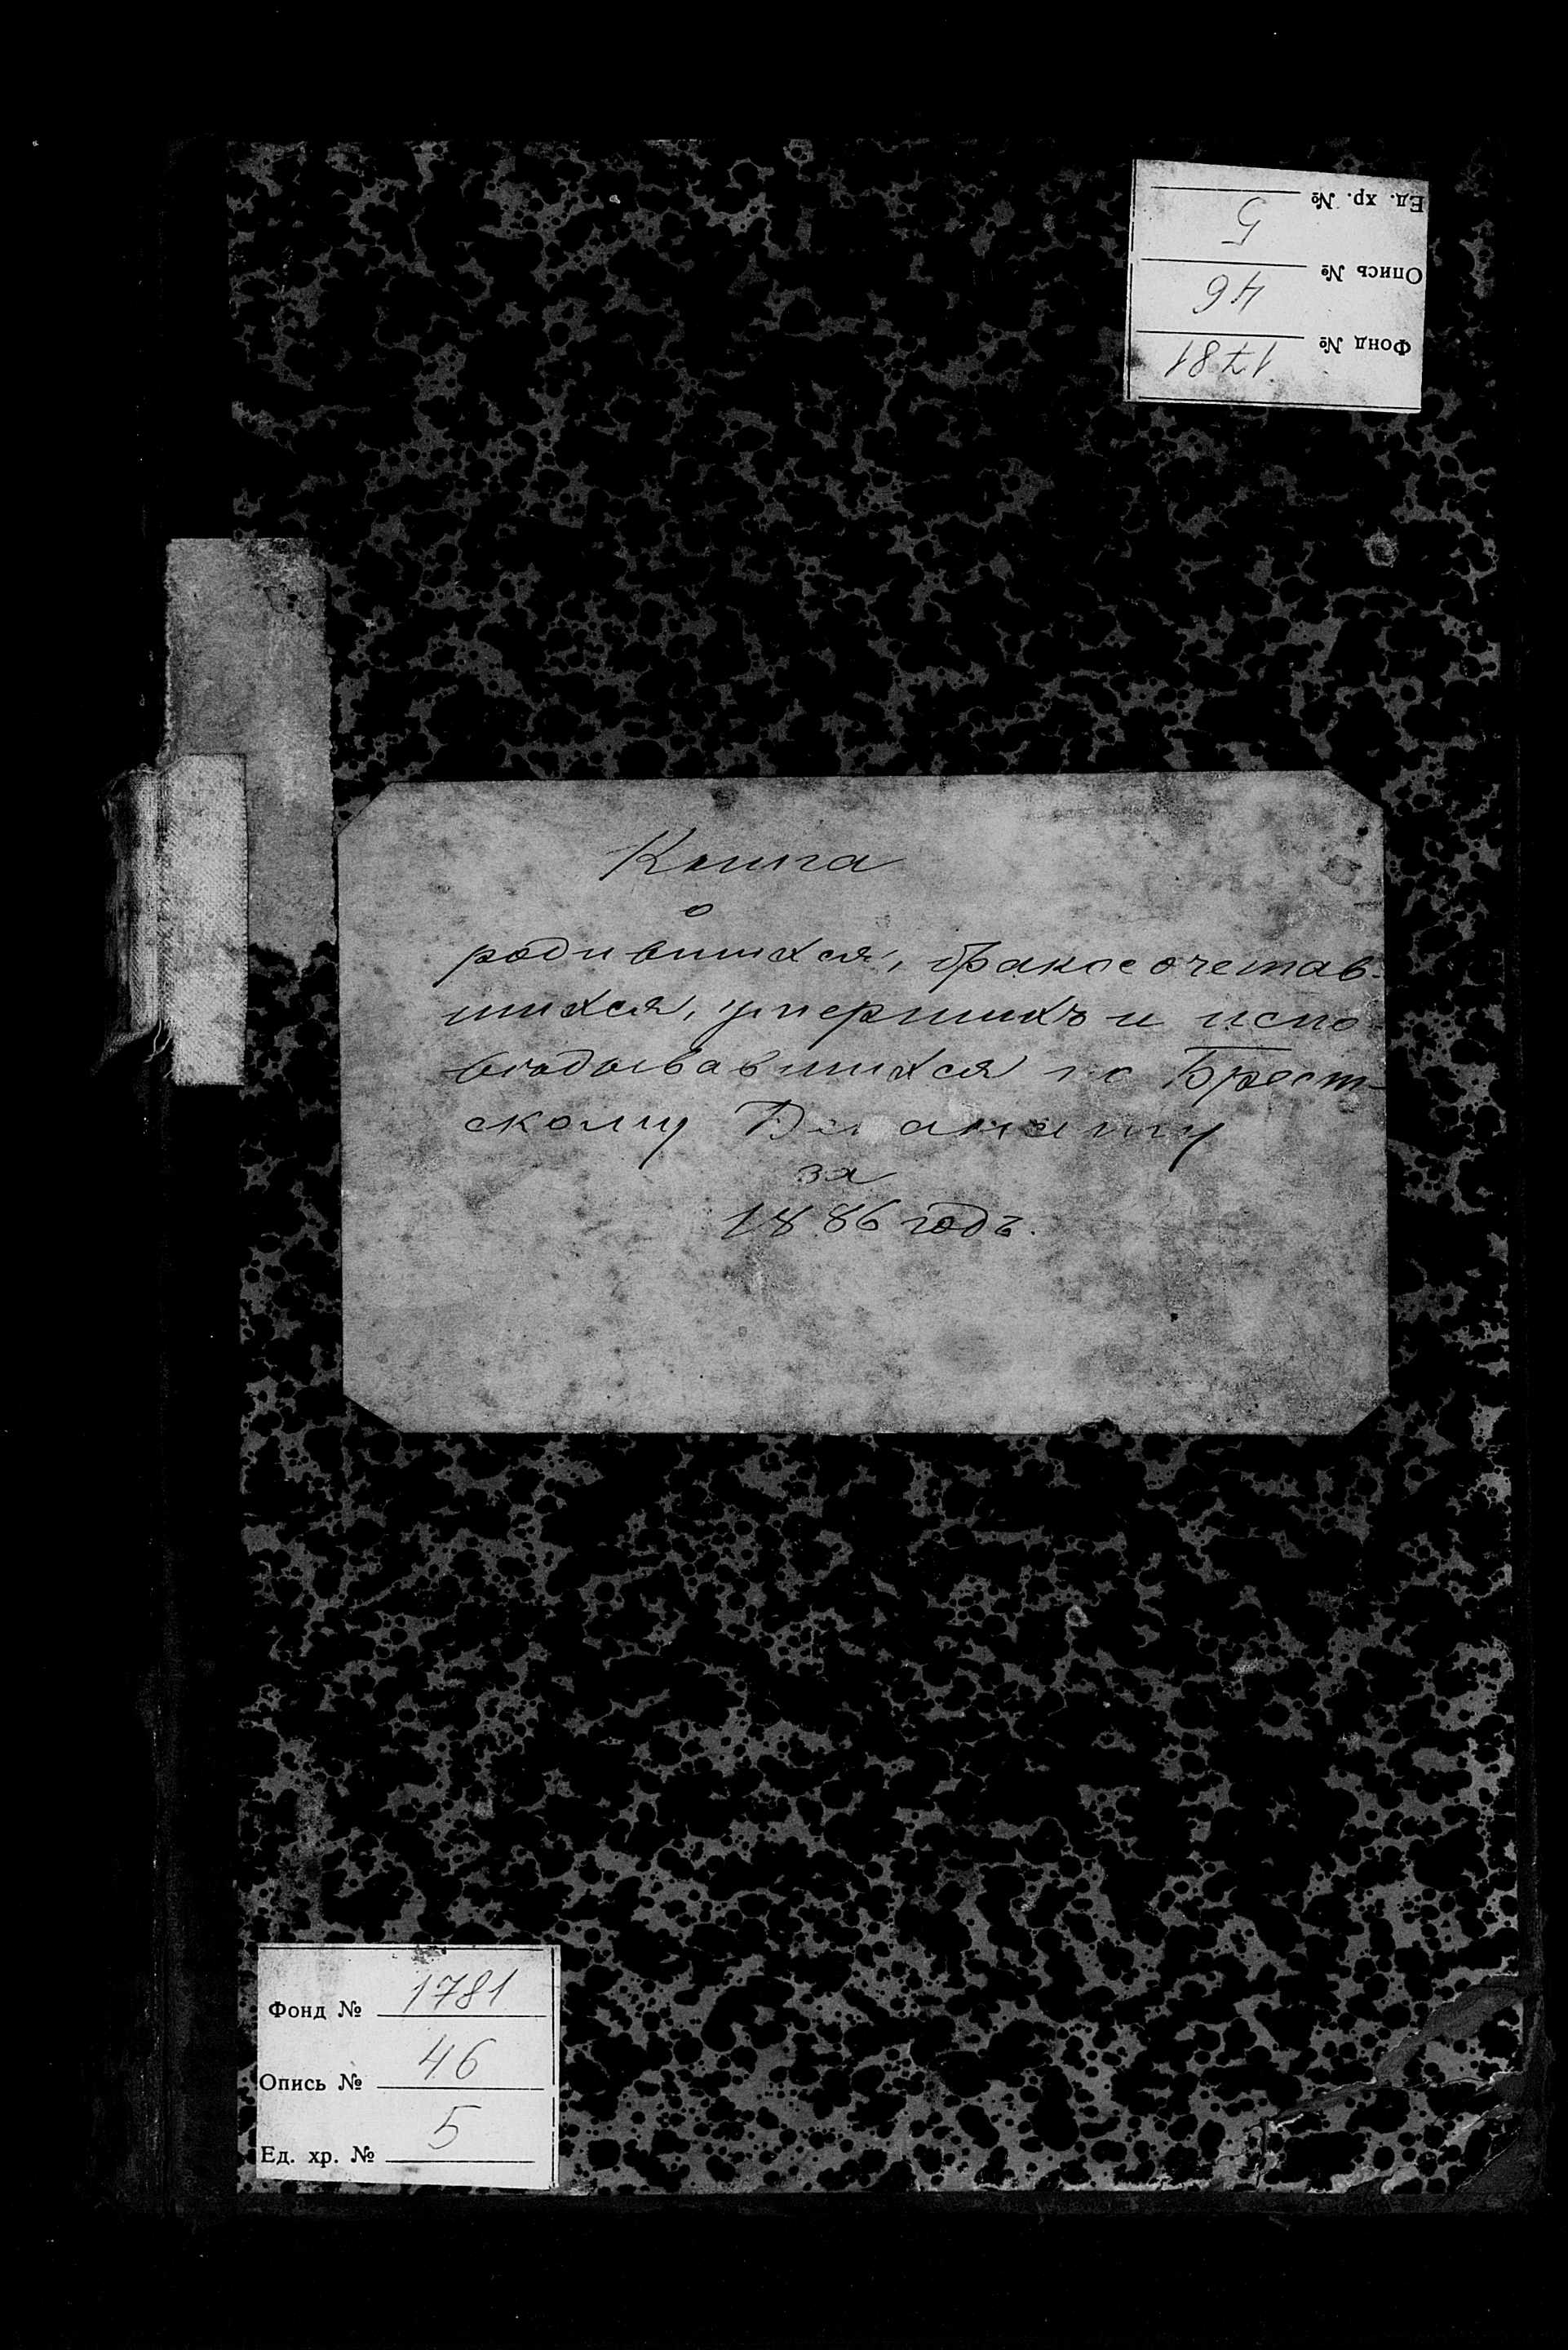 Ед. хр. № 5
Опись № 46
Фонд № 1781
Книга
о
родившихся, бракосочетав-
шихся, умершихъ и испо-
вѣдывавшихся по Брест-
скому Деканату
за
1886 годъ.
Фонд № 1781
Опись № 46
Ед. хр. № 5